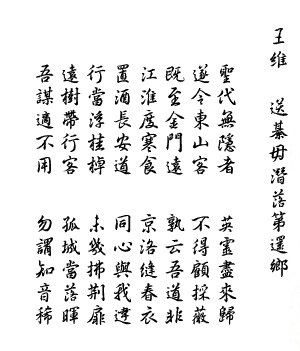 王维 送綦毋潛落第還鄉
聖代無隱者 英靈盡來歸
遂令東山客 不得顧採薇
既至金門遠 孰云吾道非
江淮度寒食 京洛縫春衣
置酒長安道 同心與我違
行當浮桂棹 未幾拂荆扉
遠樹帶行客 孤城當落暉
吾謀適不用 勿謂知音稀